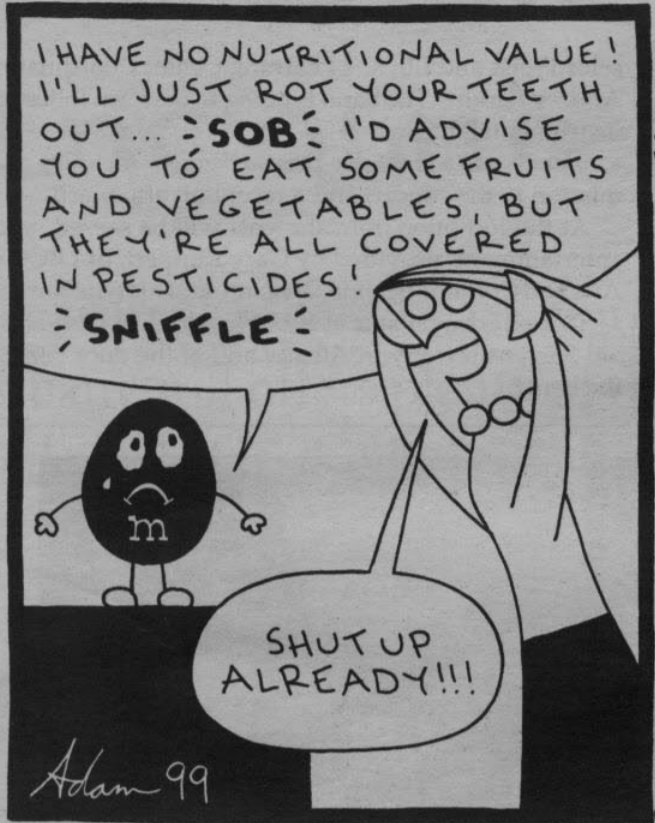 I HAVE NO NUTRITIONAL VALUE!
I'LL JUST ROT YOUR TEETH
OUT... SOB I'D ADVISE
YOU TO EAT SOME FRUITS
AND VEGETABLES, BUT
THEY'RE ALL COVERED
IN PESTICIDES!
SNIFFLE
m
SHUT UP
ALREADY!!!
Adam 99